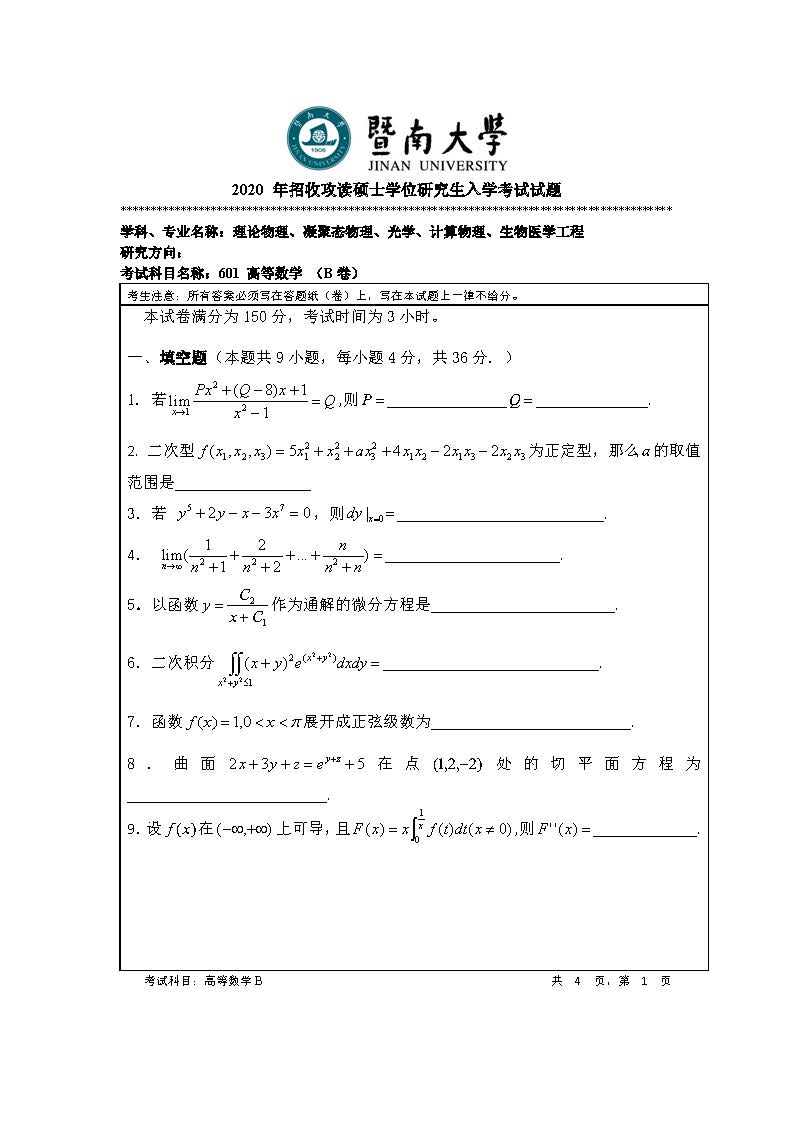 暨南大学
JINAN UNIVERSITY
1906
2020 年招收攻读硕士学位研究生入学考试试题
********************************************************************************************
学科、专业名称：理论物理、凝聚态物理、光学、计算物理、生物医学工程
研究方向：
考试科目名称：601 高等数学 （B 卷）
考生注意：所有答案必须写在答题纸（卷）上，写在本试题上一律不给分。
本试卷满分为 150 分，考试时间为 3 小时。
一、填空题（本题共 9 小题，每小题 4 分，共 36 分. ）
1. 若 $\lim_{x\to 1}\frac{Px^2+(Q-8)x+1}{x^2-1}=Q$ ,则 $P=$ ________________ $Q=$ _______________.
2. 二次型 $f(x_1,x_2,x_3)=5x_1^2+x_2^2+ax_3^2+4x_1x_2-2x_1x_3-2x_2x_3$ 为正定型，那么 $a$ 的取值
范围是__________________
3. 若 $y^5+2y-x-3x^7=0$，则 $dy|_{x=0}=$ ___________________________.
4. $\lim_{n\to\infty}(\frac{1}{n^2+1}+\frac{2}{n^2+2}+...+\frac{n}{n^2+n})=$ _______________________.
5. 以函数 $y=\frac{C_2}{x+C_1}$ 作为通解的微分方程是________________________.
6. 二次积分 $\iint_{x^2+y^2\le 1}(x+y)^2e^{(x^2+y^2)}dxdy=$ ____________________________.
7. 函数 $f(x)=1,0<x<\pi$ 展开成正弦级数为__________________________.
8 . 曲面 $2x+3y+z=e^{y+z}+5$ 在点 $(1,2,-2)$ 处的切平面方程为
__________________________.
9. 设 $f(x)$ 在 $(-\infty,+\infty)$ 上可导，且 $F(x)=x\int_0^{\frac{1}{x}}f(t)dt(x\ne 0)$ ,则 $F''(x)=$ ______________.
考试科目：高等数学 B 共 4 页，第 1 页